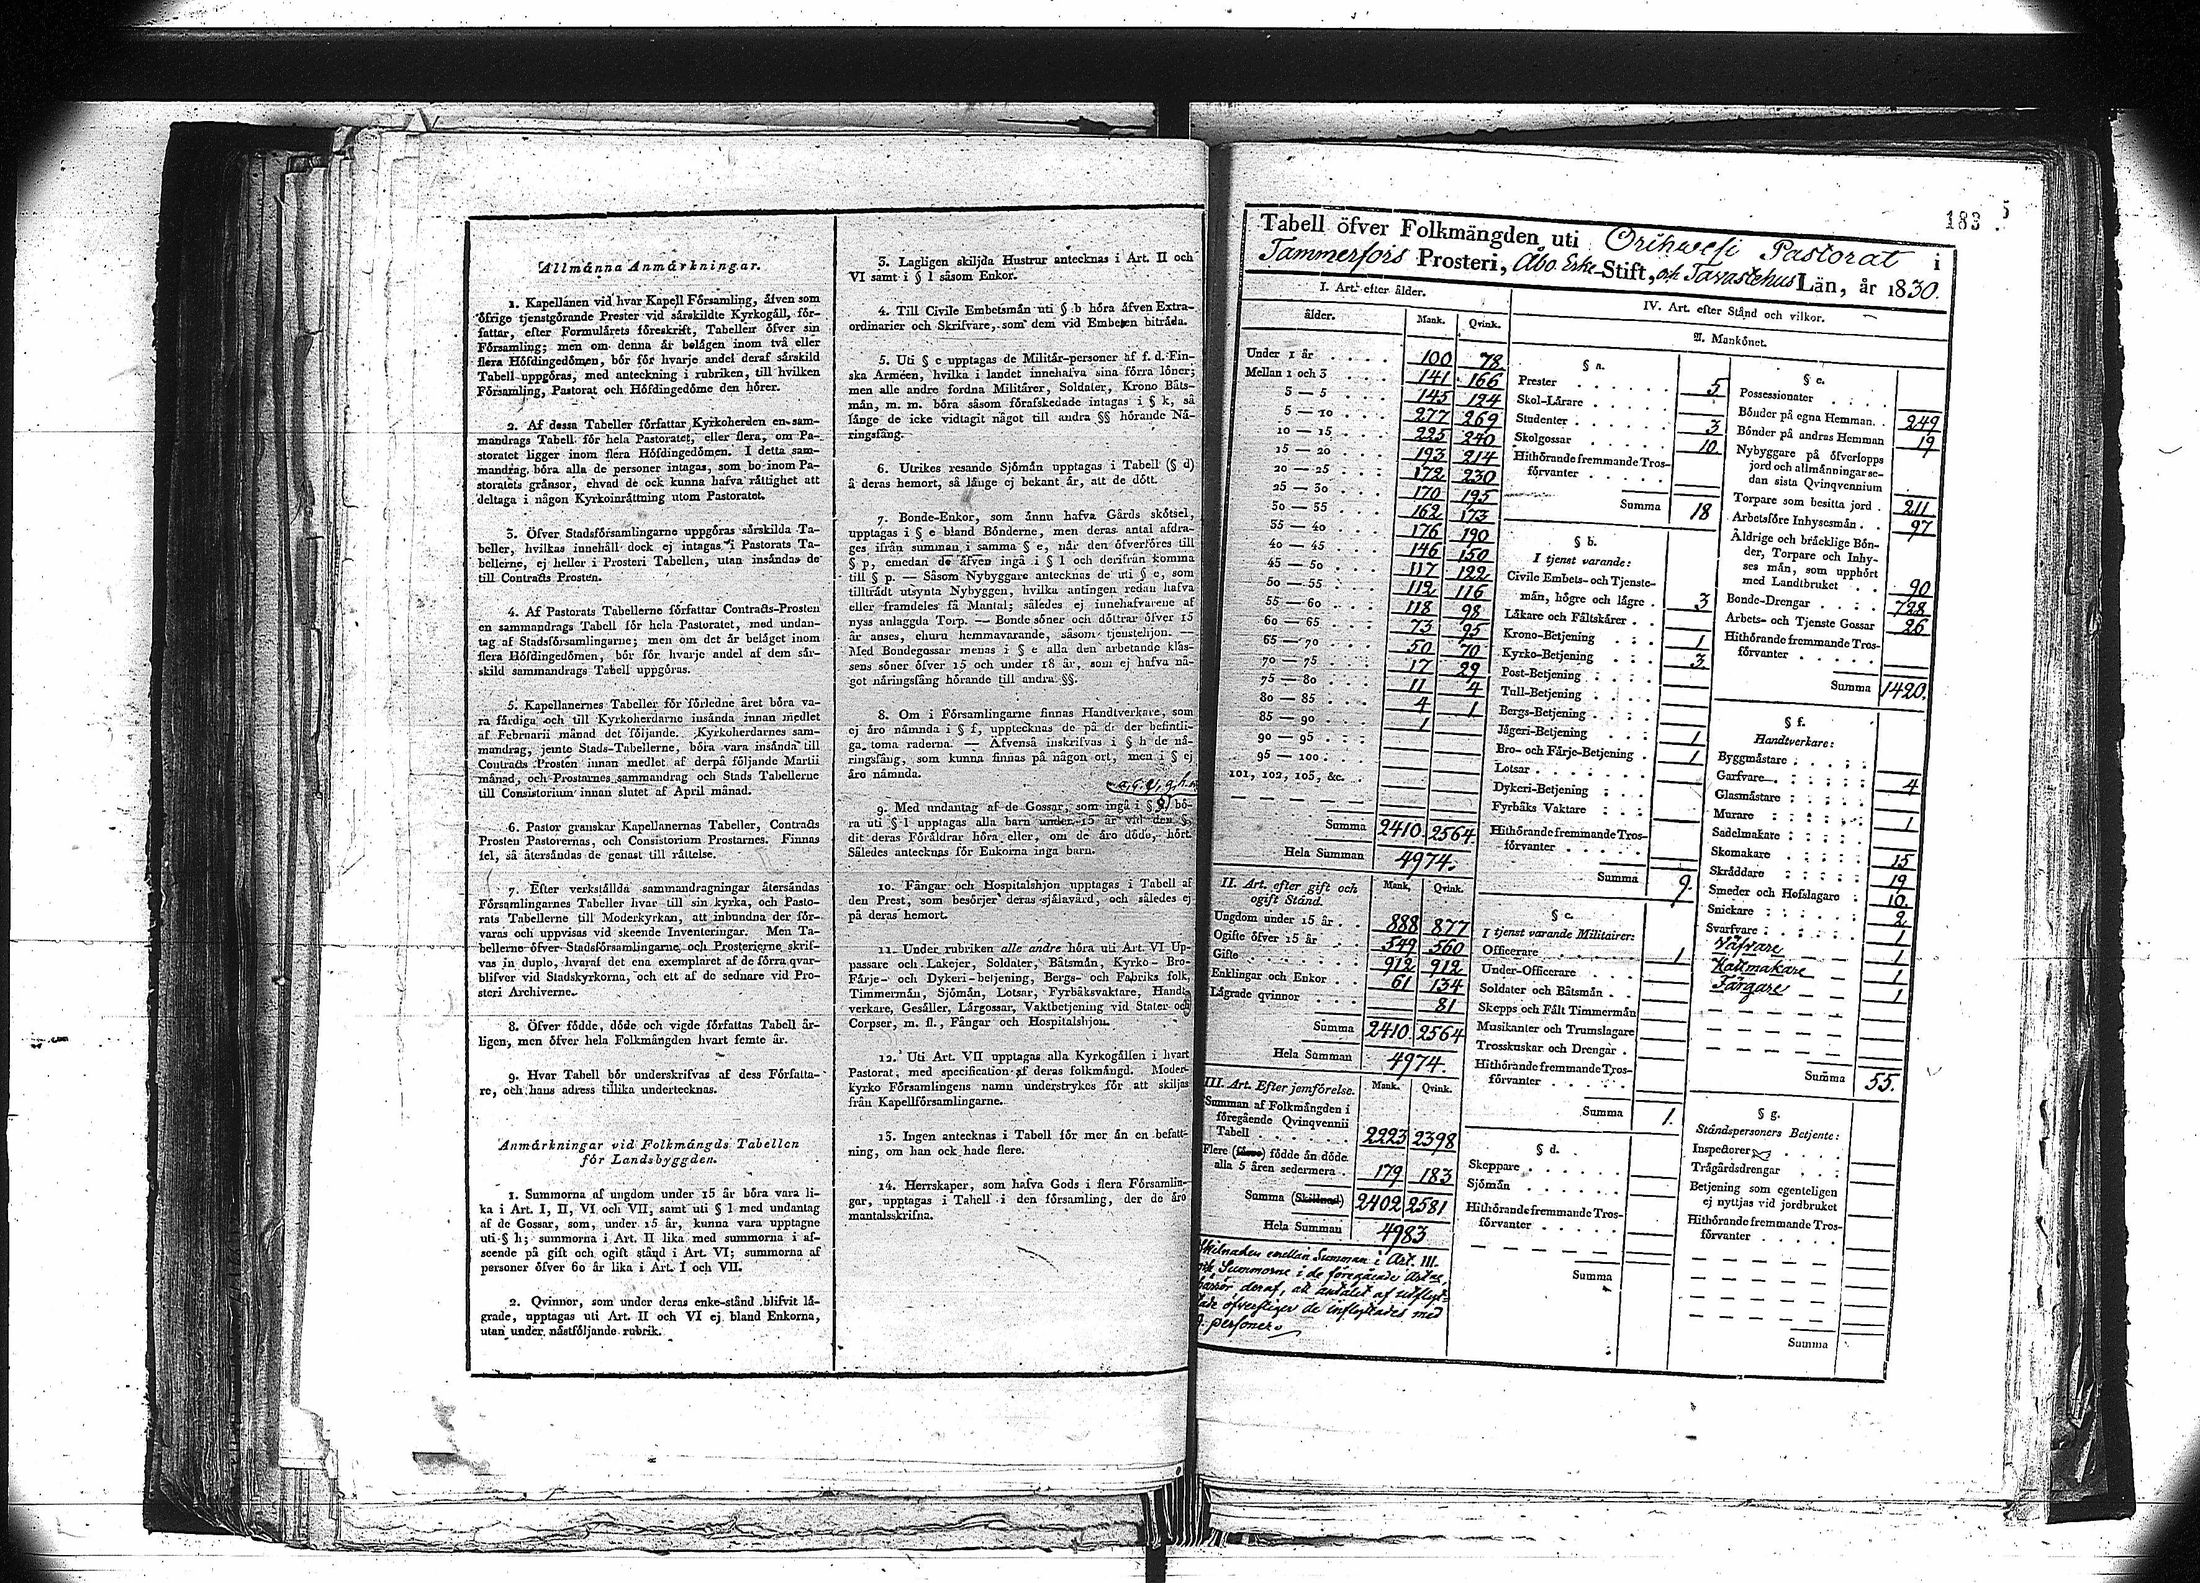 Allmånna Anmårkningar.
1. Kapellanen vid hvar Kapell Församling, åfven som
öfrige tjenstgörande Prester vid sårskildte Kyrkogåll, för-
fattar, efter Formulårets föreskrift, Tabeller öfver sin
Församling; men om denna år belågen inom två eller
flera Höfdingedömen, bör för hvarje andel deraf sårskild
Tabell uppgöras, med anteckning i rubriken, till hvilken
Församling, Pastorat och Höfdingedöme den hörer.
2. Af dessa Tabeller författar Kyrkoherden en sam-
mandrags Tabell för hela Pastoratet, eller flera, om Pa-
storatet ligger inom flera Höfdingedömen. I detta sam-
mandrag böra alla de personer intagas, som bo inom Pa-
storatets grånsor, ehvad de ock kunna hafva råttighet att
deltaga i någon Kyrkoinråttning utom Pastoratet.
3. Öfver Stadsförsamlingarne uppgöras sårskilda Ta-
beller, hvilkas innehåll dock ej intagas i Pastorats Ta-
bellerne, ej heller i Prosteri Tabellen, utan insåndas de
till Contracts Prosten.
4. Af Pastorats Tabellerne författar Contracts-Prosten
en sammandrags Tabell för hela Pastoratet, med undan-
tag af Stadsförsamlingarne; men om det år belåget inom
flera Höfdingedömen, bör för hvarje andel af dem sår-
skild sammandrags Tabell uppgöras.
5. Kapellanernes Tabeller för förledne året böra va-
ra fårdiga och till Kyrkoherdarne insånda innan medlet
af Februarii månad det följande. Kyrkoherdarnes sam-
mandrag, jemte Stads-Tabellerne, böra vara insånda till
Contracts Prosten innan medlet af derpå följande Martii
månad, och Prostarnes sammandrag och Stads Tabellerne
till Consistorium innan slutet af April månad.
6. Pastor granskar Kapellanernas Tabeller, Contracts
Prosten Pastorernas, och Consistorium Prostarnes. Finnas
fel, så återsåndas de genast till råttelse.
7. Efter verkstållda sammandragningar återsåndas
Församlingarnes Tabeller hvar till sin kyrka, och Pasto-
rats Tabellerne till Moderkyrkan, att inbundna der för-
varas och uppvisas vid skeende Inventeringar. Men Ta-
bellerne öfver Stadsförsamlingarne och Prosterierne skrif-
vas in duplo, hvaraf det ena exemplaret af de förra qvar-
blifver vid Stadskyrkorna, och ett af de sednare vid Pro-
steri Archiverne.
8. Öfver födde, döde och vigde författas Tabell år-
ligen, men öfver hela Folkmången hvart femte år.
9. Hvar Tabell bör underskrifvas af dess Författa-
re, och hans adress tillika undertecknas.
Anmårkningar vid Folkmångds Tabellen
för Landsbyggden.
1. Summorna af ungdom under 15 år böra vara li-
ka i Art. I, II, VI och VII, samt uti § l med undantag
af de Gossar, som, under 15 år, kunna vara upptagne
uti § h; summorna i Art. II lika med summorna i af-
seende på gift och ogift stånd i Art. VI; summorna af
personer öfver 60 år lika i Art. I och VII.
2. Qvinnor, som under deras enke-stånd blifvit lå-
grade, upptagas uti Art. II och VI ej bland Enkorna,
utan under nåstföljande rubrik.
3. Lagligen skiljda Hustrur antecknas i Art. II och
VI samt i § l såsom Enkor.
4. Till Civile Embetsmån uti § b höra åfven Extra-
ordinarier och Skrifvare, som dem vid Embeten bitråda.
5. Uti § c upptagas de Militår-personer af f. d. Fin-
ska Arméen, hvilka i landet innehafva sina förra löner;
men alle andre fordna Militårer, Soldater, Krono Båts-
mån, m. m. böra såsom förafskedade intagas i § k, så
långe de icke vidtagit något till andra §§ hörande Nå-
ringsfång.
6. Utrikes resande Sjömån upptagas i Tabell (§ d)
å deras hemort, så långe ej bekant år, att de dött.
7. Bonde-Enkor, som ånnu hafva Gårds skötsel,
upptagas i § e bland Bönderne, men deras antal afdra-
ges ifrån summan i samma § e, når den öfverföres till
§ p, emedan de åfven ingå i § l och derifrån komma
till § p. — Såsom Nybyggare antecknas de uti § e, som
tilltrådt utsynta Nybyggen, hvilka antingen redan hafva
eller framdeles få Mantal; således ej innehafvarene af
nyss anlagda Torp. — Bonde söner och döttrar öfver 15
år anses, ehuru hemmavarande, såsom tjenstehjon. —
Med Bondegossar menas i § e alla den arbetande klas-
sens söner öfver 15 och under 18 år, som ej hafva nå-
got nåringsfång hörande till andra §§.
8. Om i Församlingarne finnas Handtverkare, som
ej åro nåmnda i § f, upptecknas de på de der befintli-
ga toma raderna. — Åfvenså inskrifvas i § h de nå-
ringsfång, som kunna finnas på någon ort, men i § ej
åro nåmnda.
9. Med undantag af de Gossar, som ingå i § bö-
ra uti § l upptagas alla barn under 15 år vid den §,
dit deras Föråldrar höra eller, om de åro döde, hört.
Således antecknas för Enkorna inga barn.
10. Fångar och Hospitalshjon upptagas i Tabell af
den Prest, som besörjer deras sjålavård, och således ej
på deras hemort.
11. Under rubriken alle andre höra uti Art. VI Up-
passare och Lakejer, Soldater, Båtsmån, Kyrko- Bro-
Fårje- och Dykeri-betjening, Bergs- och Fabriks folk,
Timmermån, Sjömån, Lotsar, Fyrbåksvaktare, Handt-
verkare, Gesåller, Lårgossar, Vaktbetjening vid Stater och
Corpser, m. fl., Fångar och Hospitalshjon.
12. Uti Art. VII upptagas alla Kyrkogållen i hvart
Pastorat, med specification af deras folkmångd. Moder-
kyrko Församlingens namn understrykes för att skiljas
från Kapellförsamlingarne.
13. Ingen antecknas i Tabell för mer ån en befatt-
ning, om han ock hade flere.
14. Herrskaper, som hafva Gods i flera Församlin-
gar, upptagas i Tabell i den församling, der de åro
mantalsskrifna.
183 5
Tabell öfver Folkmångden uti Orihwesi Pastorat i
Tammerfors Prosteri, Åbo Erke-Stift, och Tavastehus Lån, år 1830.
I. Art. efter ålder.
ålder. Mank. Qvink.
Under 1 år 100 78
Mellan 1 och 3 141 166
3 — 5 145 124
5 — 10 277 269
10 — 15 225 240
15 — 20 193 214
20 — 25 172 230
25 — 30 170 195
30 — 35 162 173
35 — 40 176 190
40 — 45 146 150
45 — 50 117 122
50 — 55 112 116
55 — 60 118 98
60 — 65 73 95
65 — 70 50 70
70 — 75 17 29
75 — 80 11 4
80 — 85 4 1
85 — 90 1
90 — 95
95 — 100
101, 102, 103, &c.
Summa 2410 2564
Hela Summan 4974.
II. Art. efter gift och
ogift Stånd. Mank. Qvink.
Ungdom under 15 år 888 877
Ogifte öfver 15 år 549 560
Gifte 912 912
Enklingar och Enkor 61 134
Lågrade qvinnor 81
Summa 2410 2564
Hela Summan 4974.
III. Art. Efter jemförelse. Mank. Qvink.
Summan af Folkmångden i
föregående Qvinqvennii
Tabell 2223 2398
Flere (fårre) födde ån döde
alla 5 åren sedermera 179 183
Summa (Skillnad) 2402 2581
Hela Summan 4983
Skilnaden emellan Summan i Art. III.
och Summorne i de föregående Art:ne,
härrör deraf, att antalet af utflytt-
tade öfverstiger de inflyttades med
9. personer.
IV. Art. efter Stånd och vilkor.
A. Mankönet.
§ a.
Prester 5
Skol-Lårare
Studenter 3
Skolgossar 10
Hithörande fremmande Tros-
förvanter
Summa 18
§ b.
I tjenst varande:
Civile Embets- och Tjenste-
mån, högre och lågre 3
Låkare och Fåltskårer
Krono-Betjening 1
Kyrko-Betjening 3
Post-Betjening
Tull-Betjening
Bergs-Betjening
Jågeri-Betjening 1
Bro- och Fårje-Betjening 1
Lotsar
Dykeri-Betjening
Fyrbåks Vaktare
Hithörande fremmande Tros-
förvanter
Summa 9.
§ c.
I tjenst varande Militairer:
Officerare 1
Under-Officerare
Soldater och Båtsmån
Skepps och Fålt Timmermån
Musikanter och Trumslagare
Trosskuskar och Drengar
Hithörande fremmande Tros-
förvanter
Summa 1.
§ d.
Skeppare
Sjömån
Hithörande fremmande Tros-
förvanter
Summa
§ e.
Possessionater
Bönder på egna Hemman 249
Bönder på andras Hemman 19
Nybyggare på öfverlopps
jord och allmånningar se-
dan sista Qvinqvennium
Torpare som besitta jord 211
Arbetsföre Inhysesmån 97
Åldrige och bråcklige Bön-
der, Torpare och Inhy-
ses mån, som upphört
med Landtbruket 90
Bonde-Drengar 728
Arbets- och Tjenste Gossar 26
Hithörande fremmande Tros-
förvanter
Summa 1420.
§ f.
Handtverkare:
Byggmåstare
Garfvare 4
Glasmåstare
Murare 1
Sadelmakare
Skomakare 15
Skråddare 19
Smeder och Hofslagare 10.
Snickare 2
Svarfvare 1
Väfvare 1
Hattmakare 1
Färgare 1
Summa 55.
§ g.
Ståndspersoners Betjente:
Inspectorer
Trågårdsdrengar
Betjening som egenteligen
ej nyttjas vid jordbruket
Hithörande fremmande Tros-
förvanter
Summa